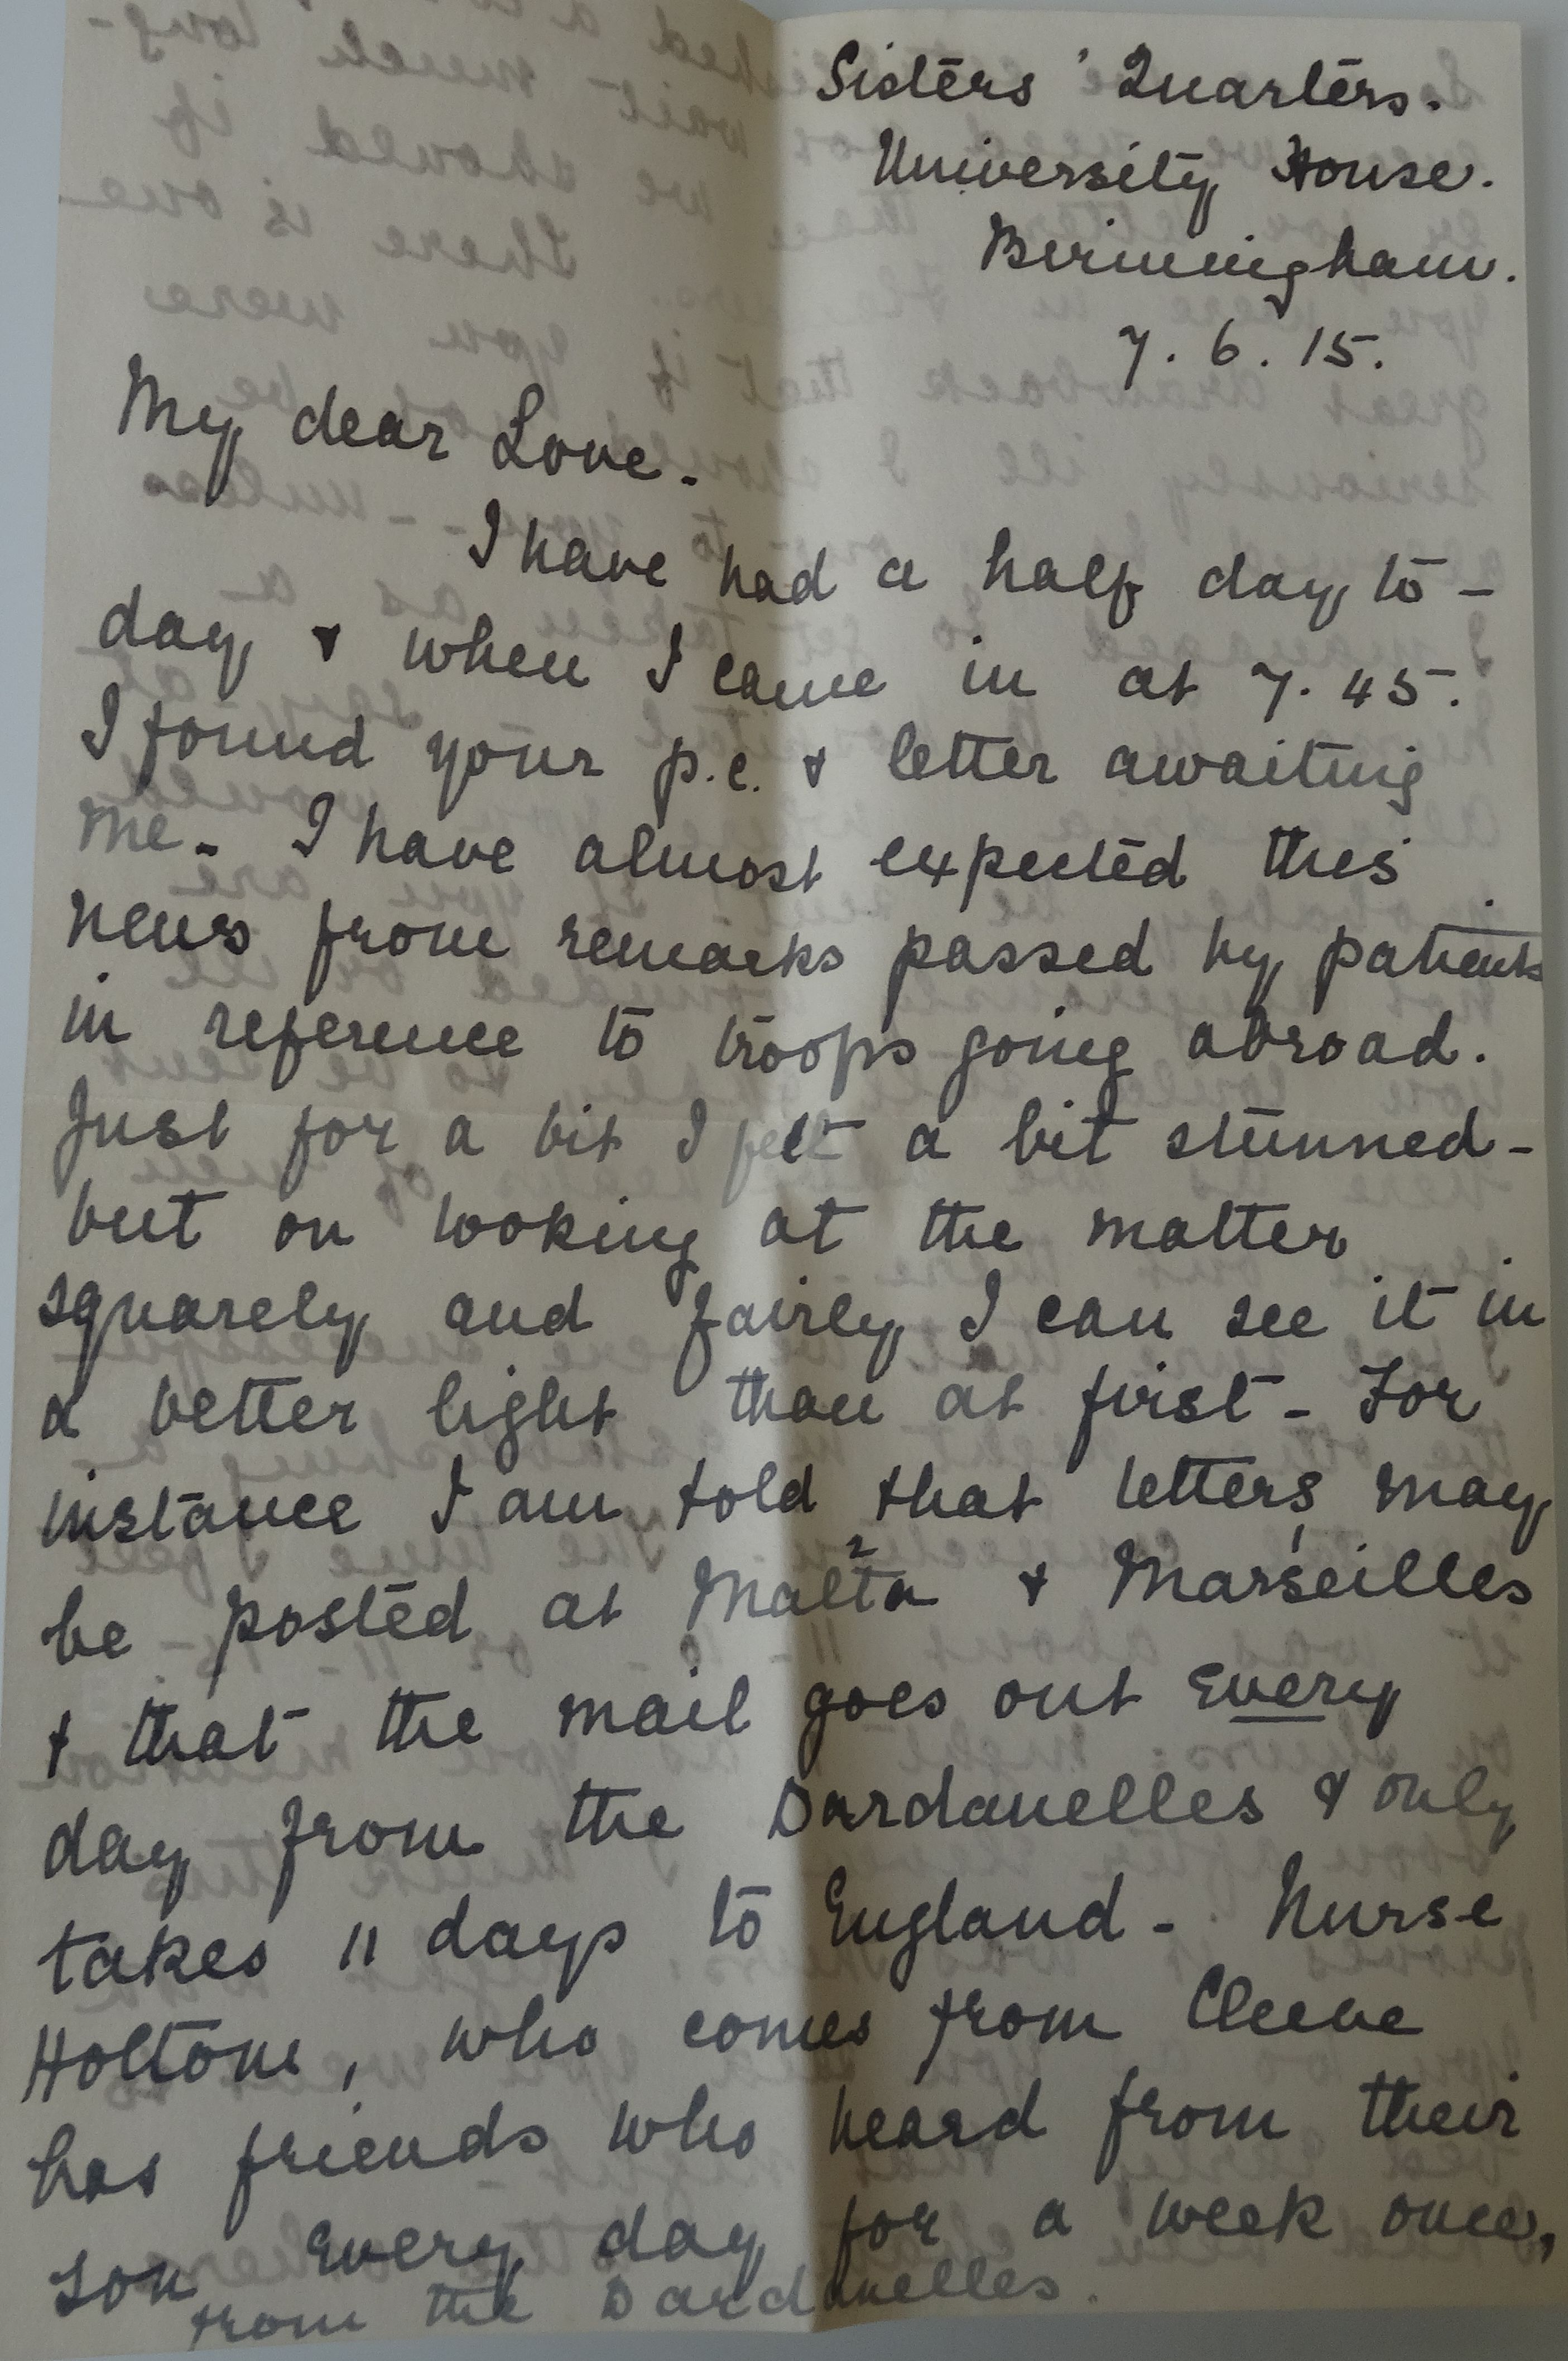 Sisters' Quarters.
University House.
Birmingham.
7. 6. 15.
My dear Love.
I have had a half day to-
day & when I came in at 7.45.
I found your p.c. & letter awaiting
me. I have almost expected this
news from remarks passed by patients
in reference to troops going abroad.
Just for a bit I felt a bit stunned -
but on looking at the matter
squarely and fairly I can see it in
a better light than at first - For
instance I am told that letters may
be posted at Malta 2 & Marseilles 1
& that the mail goes out every
day from the Dardanelles & only
takes 11 days to England - Nurse
Holtom, who comes from Cleeve
has friends who heard from their
son every day for a week once,
from the Dardanelles.